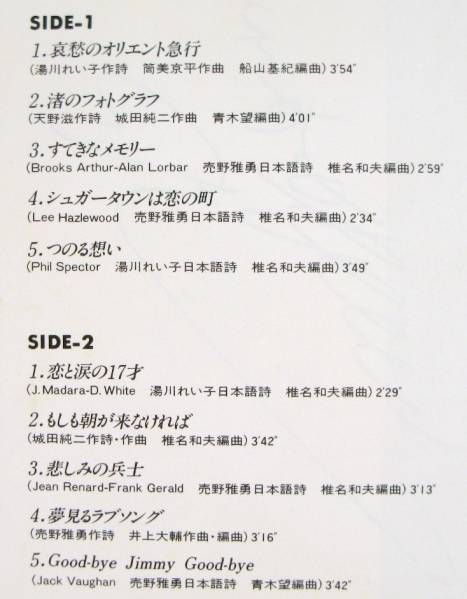 SIDE-1
1.哀愁のオリエント急行
(湯川れい子作詩　筒美京平作曲　船山基紀編曲) 3′54″
2.渚のフォトグラフ
(天野滋作詩　城田純二作曲　青木望編曲) 4′01″
3.すてきなメモリー
(Brooks Arthur-Alan Lorbar　売野雅勇日本語詩　椎名和夫編曲) 2′59″
4.シュガータウンは恋の町
(Lee Hazlewood　売野雅勇日本語詩　椎名和夫編曲) 2′34″
5.つのる想い
(Phil Spector　湯川れい子日本語詩　椎名和夫編曲) 3′49″
SIDE-2
1.恋と涙の17才
(J.Madara-D.White　湯川れい子日本語詩　椎名和夫編曲) 2′29″
2.もしも朝が来なければ
(城田純二作詩・作曲　椎名和夫編曲) 3′42″
3.悲しみの兵士
(Jean Renard-Frank Gerald　売野雅勇日本語詩　椎名和夫編曲) 3′13″
4.夢見るラブソング
(売野雅勇作詩　井上大輔作曲・編曲) 3′16″
5.Good-bye Jimmy Good-bye
(Jack Vaughan　売野雅勇日本語詩　青木望編曲) 3′42″